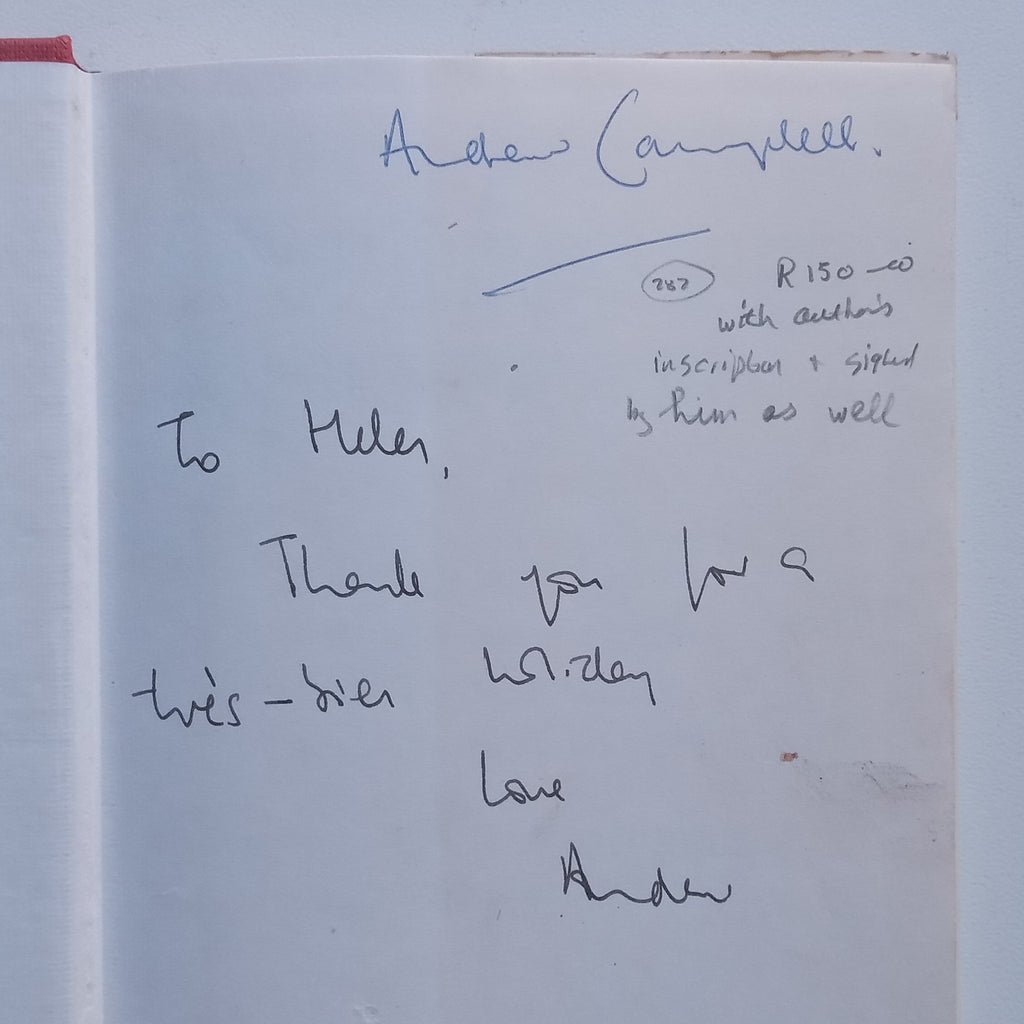 Andrew Campbell.
282 R150-00
with author's
inscription + signed
by him as well
To Helen,
Thank you for a
très-bien holiday
Love
Andrew